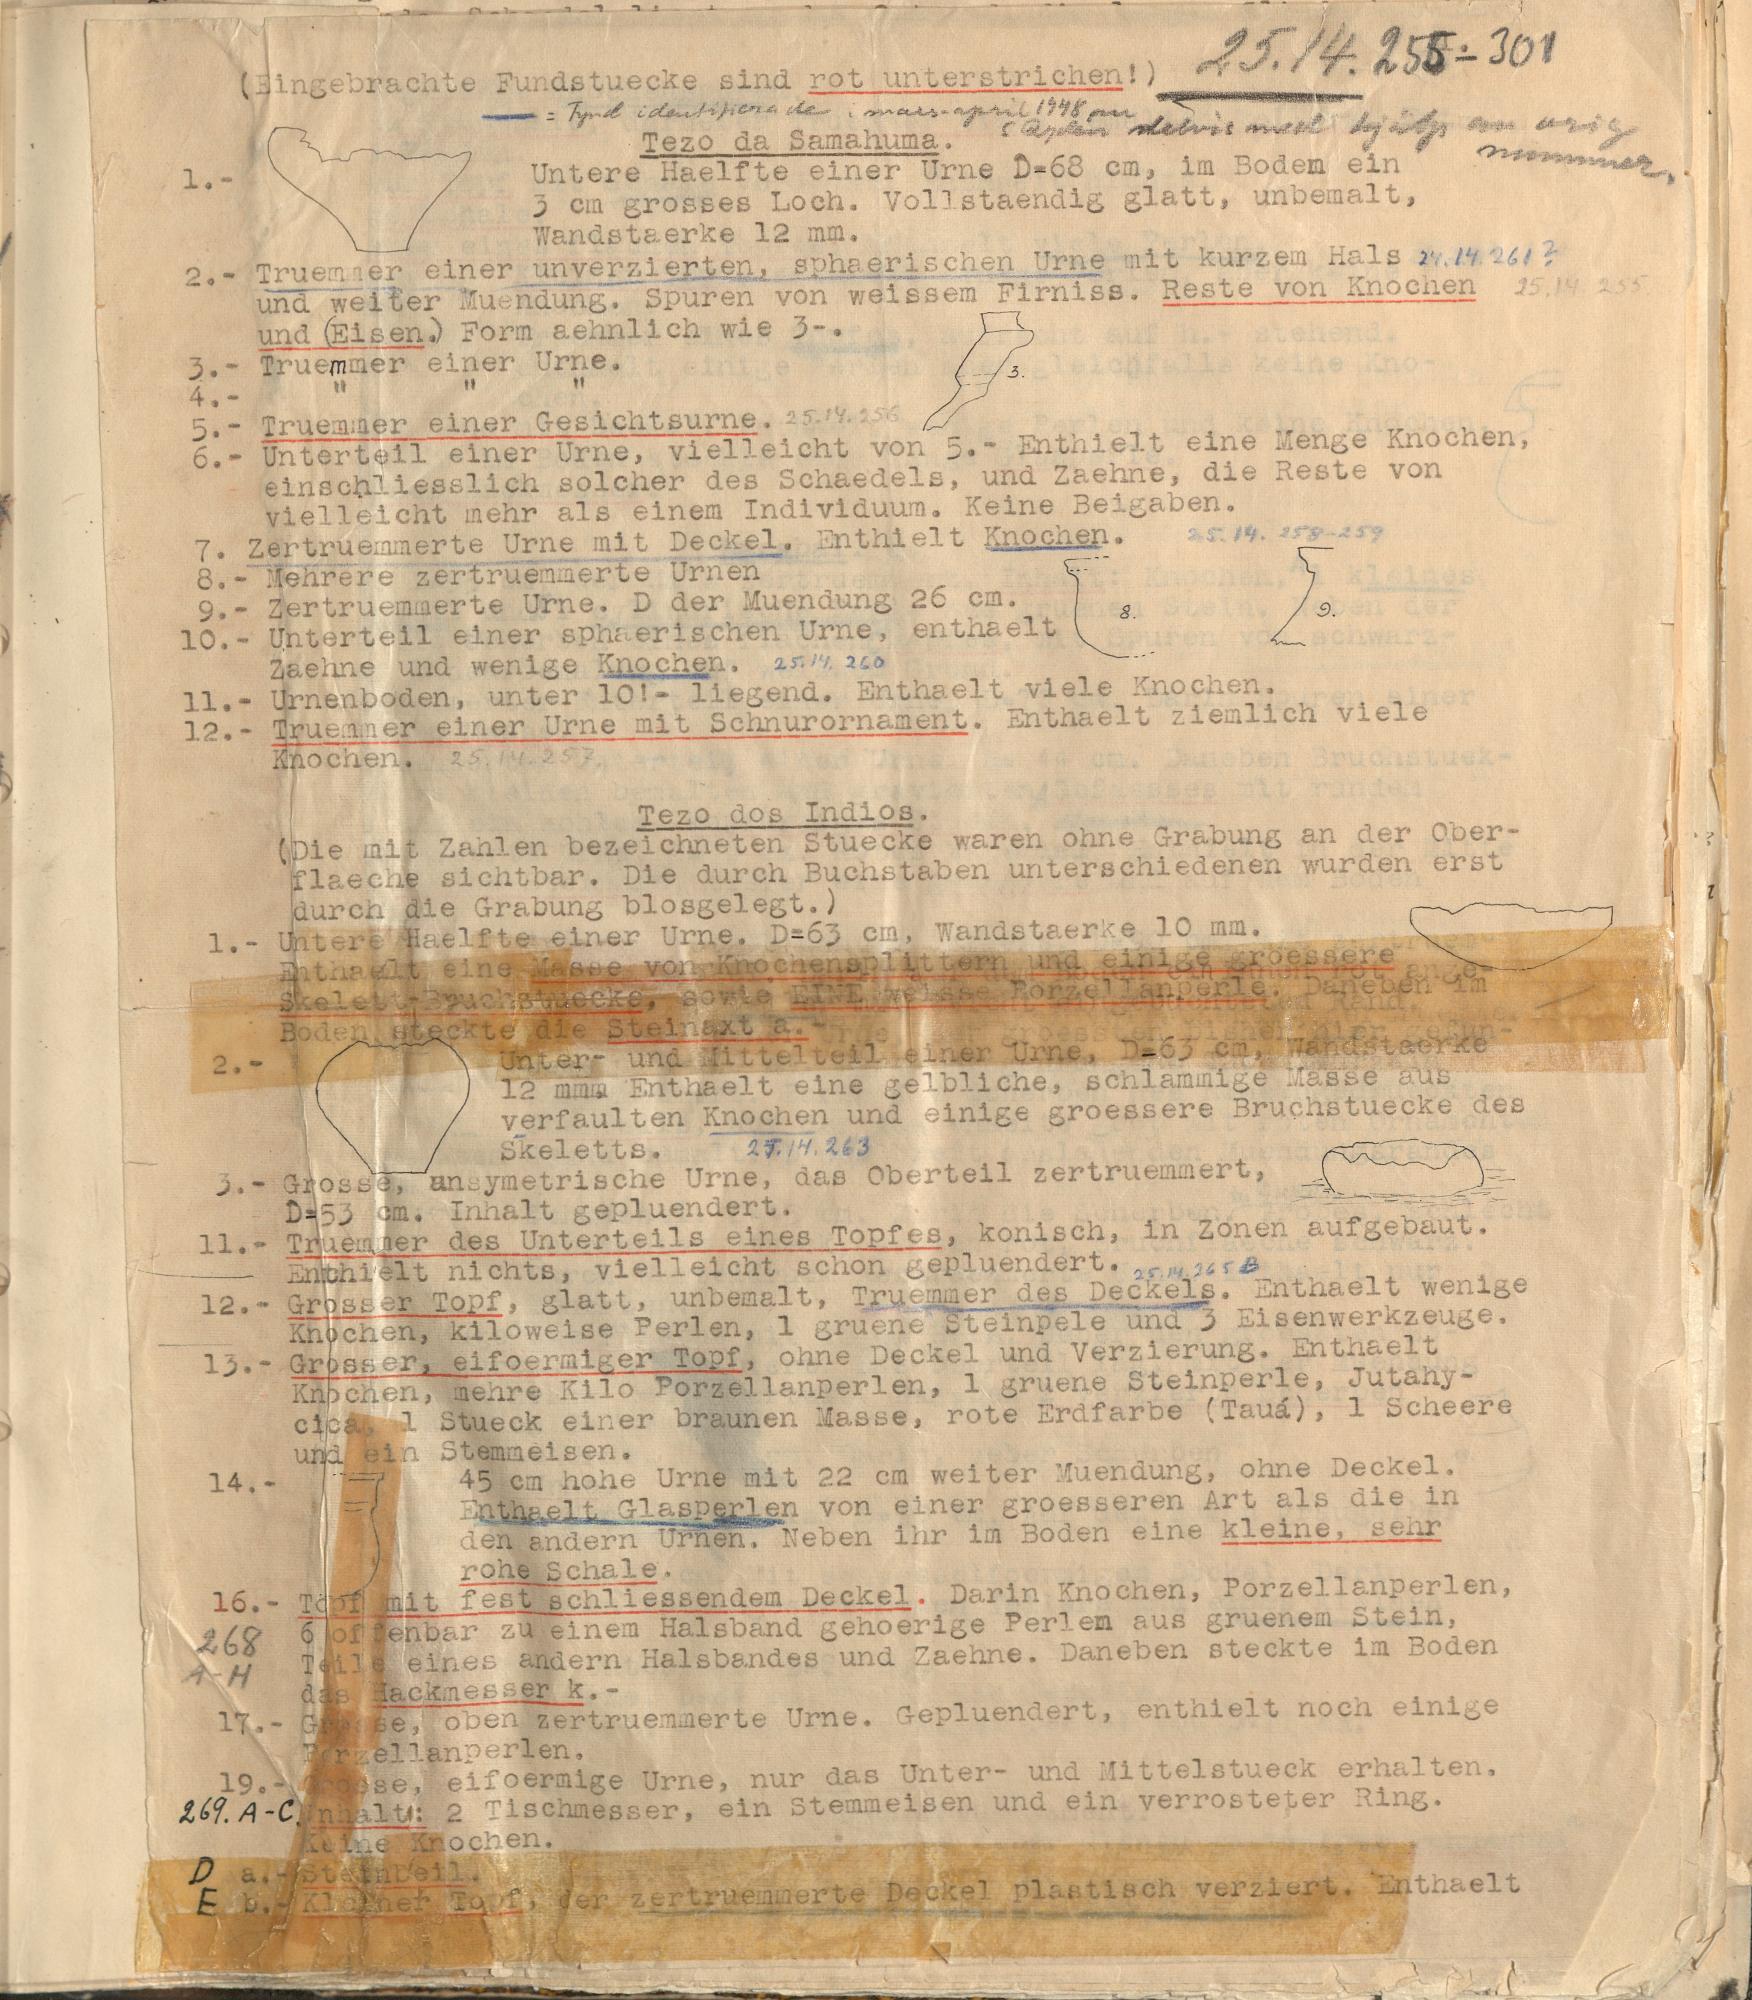 25.14.255-301
(Eingebrachte Fundstuecke sind rot unterstrichen!)
= Fynd identifierade i mars-april 1948 av
delvis med hjälp av orig
nummer.
Tezo da Samahuma.
1.- Untere Haelfte einer Urne D=68 cm, im Boden ein
3 cm grosses Loch. Vollstaendig glatt, unbemalt,
Wandstaerke 12 mm.
2.- Truemmer einer unverzierten, sphaerischen Urne mit kurzem Hals 24.14.261?
und weiter Muendung. Spuren von weissem Firniss. Reste von Knochen 25.14.255
und (Eisen.) Form aehnlich wie 3-.
3.- Truemmer einer Urne.
3.
4.- " " "
5.- Truemmer einer Gesichtsurne. 25.14.256
6.- Unterteil einer Urne, vielleicht von 5.- Enthielt eine Menge Knochen,
einschliesslich solcher des Schaedels, und Zaehne, die Reste von
vielleicht mehr als einem Individuum. Keine Beigaben.
7. Zertruemmerte Urne mit Deckel. Enthielt Knochen. 25.14.258-259
8.- Mehrere zertruemmerte Urnen
9.- Zertruemmerte Urne. D der Muendung 26 cm.
8. 9.
10.- Unterteil einer sphaerischen Urne, enthaelt
Zaehne und wenige Knochen. 25.14.260
11.- Urnenboden, unter 10!- liegend. Enthaelt viele Knochen.
12.- Truemmer einer Urne mit Schnurornament. Enthaelt ziemlich viele
Knochen. 25.14.257.
Tezo dos Indios.
(Die mit Zahlen bezeichneten Stuecke waren ohne Grabung an der Ober-
flaeche sichtbar. Die durch Buchstaben unterschiedenen wurden erst
durch die Grabung blosgelegt.)
1.- Untere Haelfte einer Urne. D=63 cm, Wandstaerke 10 mm.
Enthaelt eine Masse von Knochensplittern und einige groessere
Skelett-Bruchstuecke, sowie EINE weisse Porzellanperle. Daneben im
Boden steckte die Steinaxt a.-
2.- Unter- und Mittelteil einer Urne, D=63 cm, Wandstaerke
12 mmm Enthaelt eine gelbliche, schlammige Masse aus
verfaulten Knochen und einige groessere Bruchstuecke des
Skeletts. 25.14.263
3.- Grosse, unsymetrische Urne, das Oberteil zertruemmert,
D=53 cm. Inhalt gepluendert.
11.- Truemmer des Unterteils eines Topfes, konisch, in Zonen aufgebaut.
Enthielt nichts, vielleicht schon gepluendert. 25.14.265 B
12.- Grosser Topf, glatt, unbemalt, Truemmer des Deckels. Enthaelt wenige
Knochen, kiloweise Perlen, 1 gruene Steinpele und 3 Eisenwerkzeuge.
13.- Grosser, eifoermiger Topf, ohne Deckel und Verzierung. Enthaelt
Knochen, mehre Kilo Porzellanperlen, 1 gruene Steinperle, Jutahy-
cica, 1 Stueck einer braunen Masse, rote Erdfarbe (Tauá), 1 Scheere
und ein Stemmeisen.
14.- 45 cm hohe Urne mit 22 cm weiter Muendung, ohne Deckel.
Enthaelt Glasperlen von einer groesseren Art als die in
den andern Urnen. Neben ihr im Boden eine kleine, sehr
rohe Schale.
16.- Topf mit fest schliessendem Deckel. Darin Knochen, Porzellanperlen,
268 6 offenbar zu einem Halsband gehoerige Perlem aus gruenem Stein,
A-H Teile eines andern Halsbandes und Zaehne. Daneben steckte im Boden
das Hackmesser k.-
17.- Grosse, oben zertruemmerte Urne. Gepluendert, enthielt noch einige
Porzellanperlen.
19.- Grosse, eifoermige Urne, nur das Unter- und Mittelstueck erhalten.
269. A-C. Inhalt: 2 Tischmesser, ein Stemmeisen und ein verrosteter Ring.
Keine Knochen.
D a.- Steinbeil.
E b.- Kleiner Topf, der zertruemmerte Deckel plastisch verziert. Enthaelt